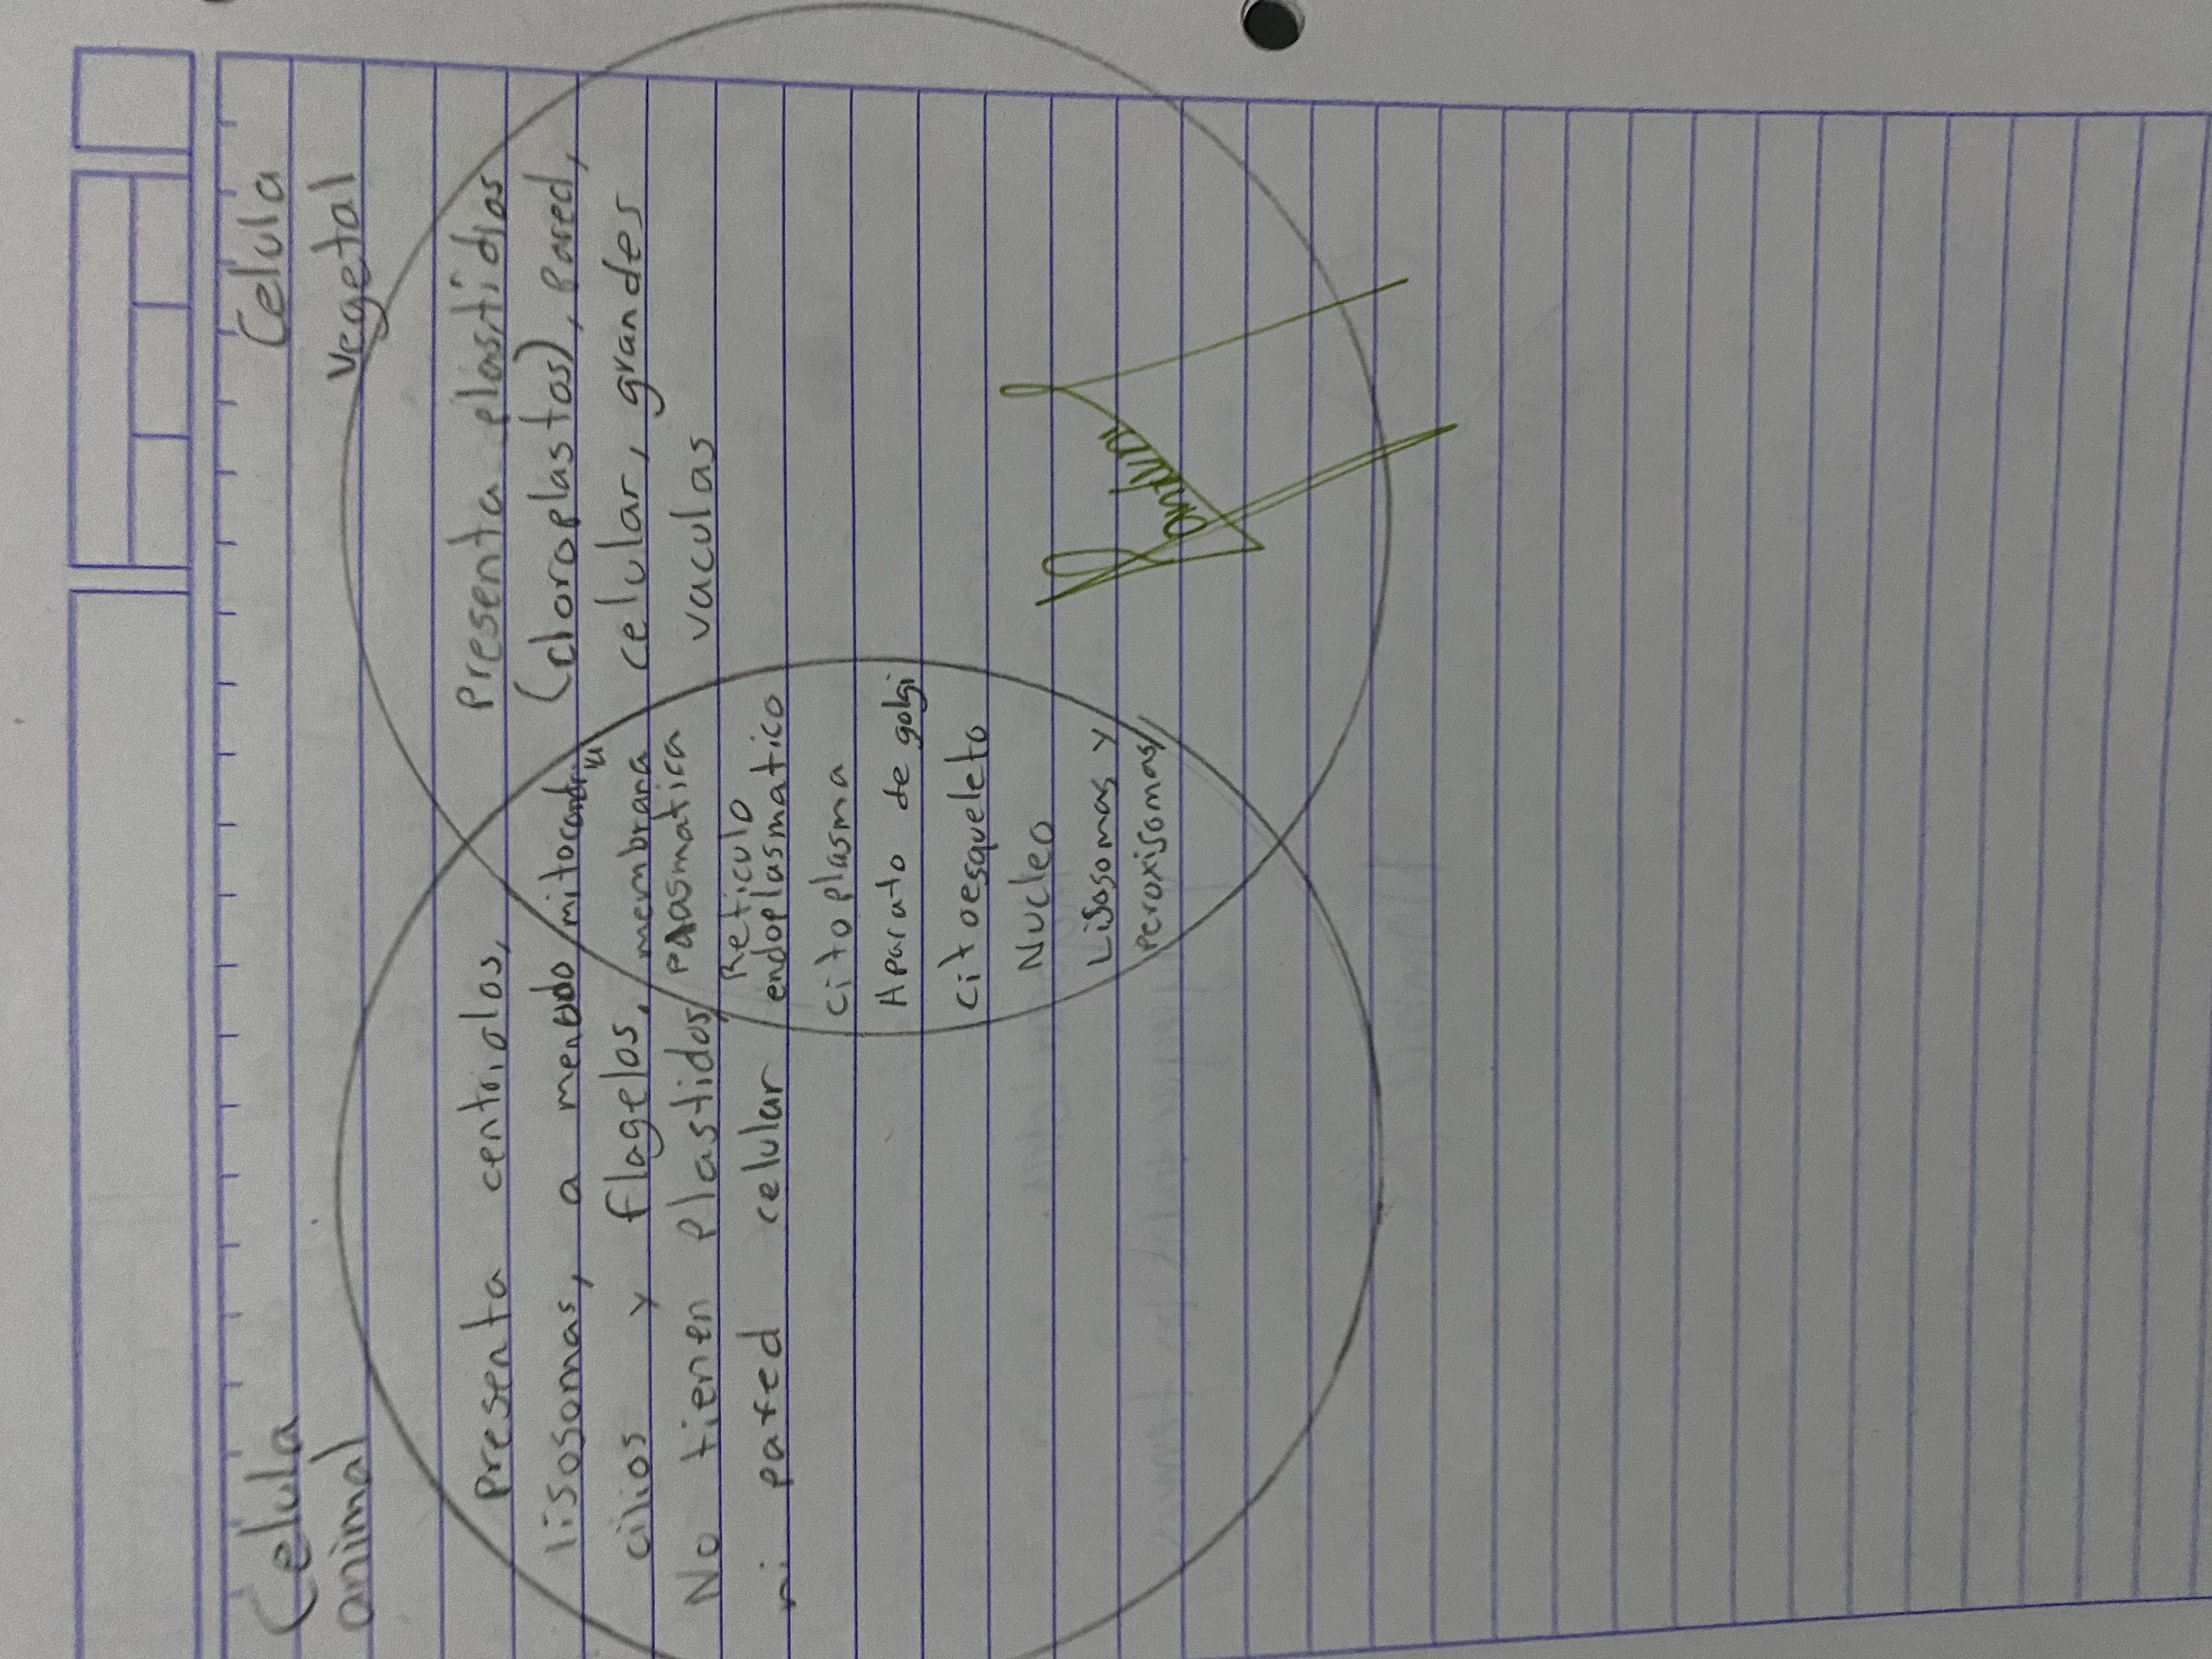 Celula
animal
Presenta centriolos,
lisosomas, a menudo
cilios y flagelos,
No tienen plastidos,
ni pared celular
mitocondria
membrana
plasmatica
Reticulo
endoplasmatico
Citoplasma
Aparato de golgi
Citoesqueleto
Nucleo
Lisosomas y
peroxisomas
Celula
vegetal
Presenta plastidios
(cloroplastos), pared,
celular, grandes
vaculas